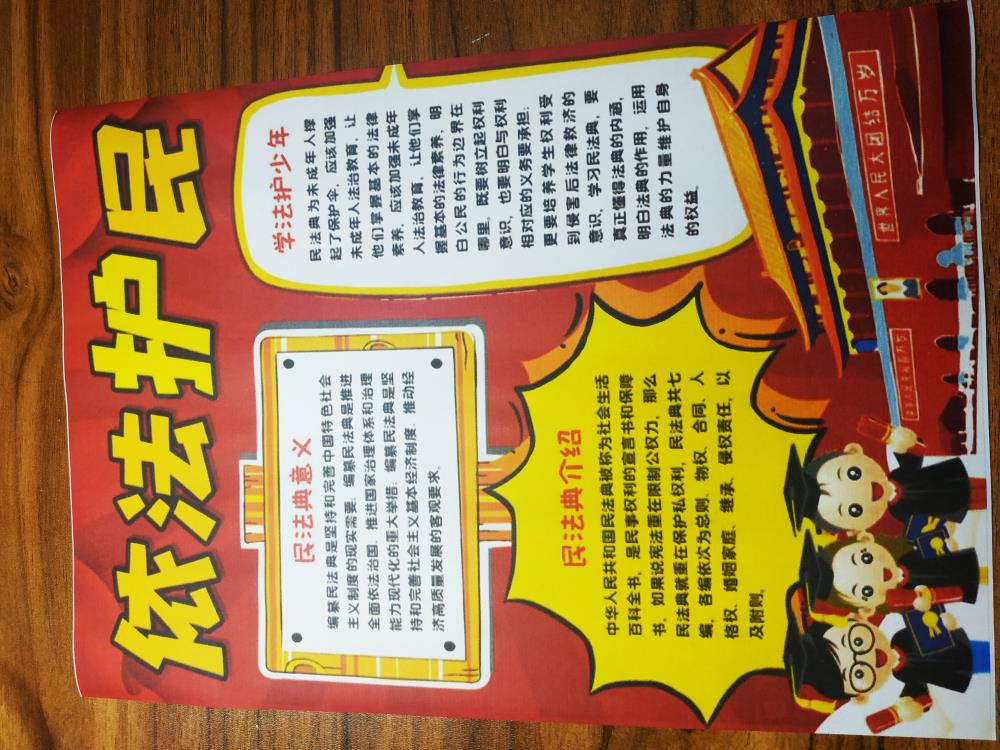 依法护民
民法典意义
编纂民法典是坚持和完善中国特色社会
主义制度的现实需要；编纂民法典是推进
全面依法治国、推进国家治理体系和治理
能力现代化的重大举措；编纂民法典是坚
持和完善社会主义基本经济制度、推动经
济高质量发展的客观要求。
学法护少年
民法典为未成年人撑
起了保护伞，应该加强
未成年人法治教育，让
他们掌握基本的法律
素养，应该加强未成年
人法治教育，让他们掌
握基本的法律素养，明
白公民的行为边界在
哪里，既要树立起权利
意识，也要明白与权利
相对应的义务要承担；
更要培养学生权利受
到侵害后法律救济的
意识，学习民法典，要
真正懂得法典的内涵，
明白法典的作用，运用
法典的力量维护自身
的权益。
民法典介绍
中华人民共和国民法典被称为社会生活
百科全书，是民事权利的宣言书和保障
书，如果说宪法重在限制公权力，那么
民法典就重在保护私权利，民法典共七
编，各编依次为总则、物权、合同、人
格权、婚姻家庭、继承、侵权责任，以
及附则。
世界人民大团结万岁